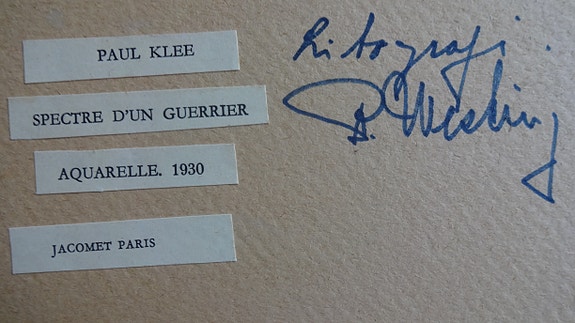 PAUL KLEE
SPECTRE D'UN GUERRIER
AQUARELLE. 1930
JACOMET PARIS
Litografi.